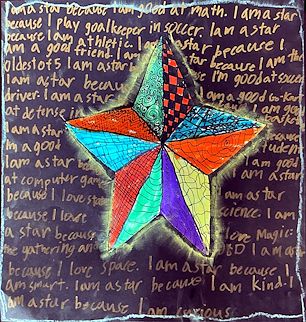 am a star because I am good at math. I am a star
because I play goalkeeper in soccer. I am a star
because I am athletic. I am a star because I
am a good friend. I am a star because I am the
oldest of 5. I am a star because I'm good at soccer
I am a star because I am a good Go-Kart
driver. I am a star
at defense
I am a star
I'm a good student
I am a star I am good
at computer games I am a star
because I love I am a star
because I love science. I am
a star because I love Magic:
the gathering and D&D I am a star
because I love space. I am a star because I
am smart. I am a star because I am kind. I
am a star because I am curious